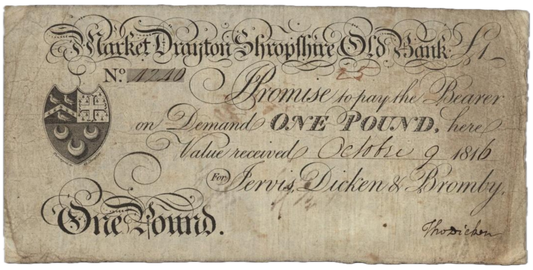 Market Drayton Shropshire Old Bank £1
No. 1240
I Promise to pay the Bearer
on Demand ONE POUND, here
Value received October 9 1816
For Jervis, Dicken & Bromby.
One Pound.
Tho Dicken